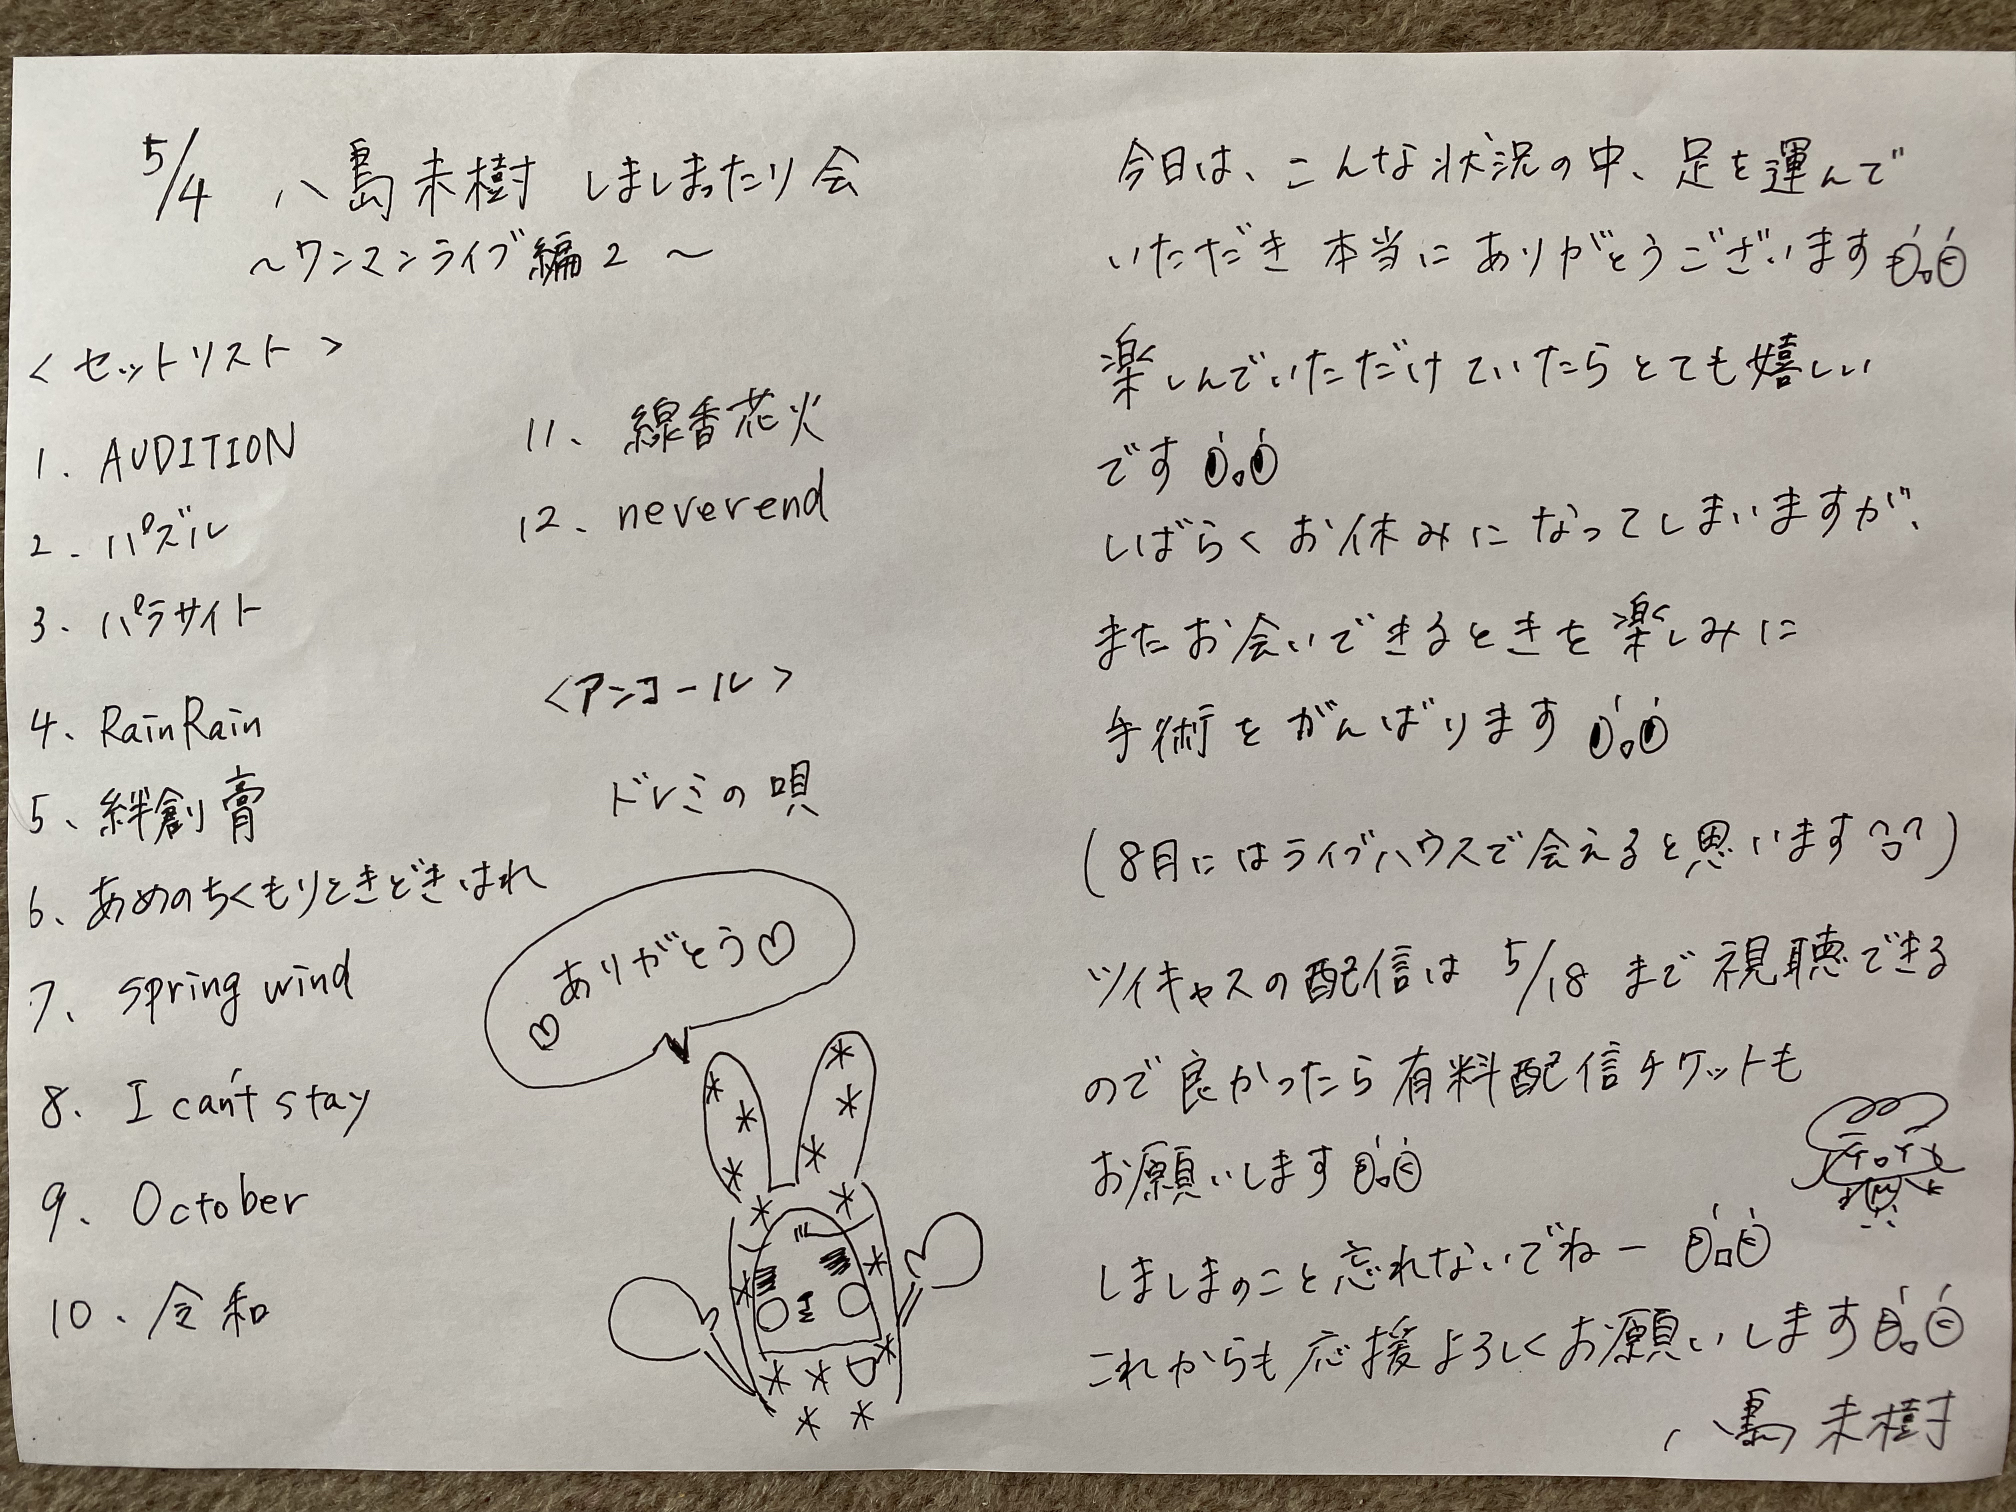 5/4 八島未樹 しましまったり会
～ワンマンライブ編2～
<セットリスト>
1. AUDITION
2. パズル
3. パラサイト
4、RainRain
5、絆創膏
6、あめのちくもりときどきはれ
7、spring wind
8、I can't stay
9、October
10、令和
11、線香花火
12、neverend
<アンコール>
ドレミの唄
ありがとう♡
♡
今日は、こんな状況の中、足を運んで
いただき本当にありがとうございます
楽しんでいただけていたらとても嬉しい
です
しばらくお休みになってしまいますが、
またお会いできるときを楽しみに
手術をがんばります
(8月にはライブハウスで会えると思います)
ツイキャスの配信は 5/18 まで視聴できる
ので良かったら有料配信チケットも
お願いします
しましまのこと忘れないでねー
これからも応援よろしくお願いします
八島未樹